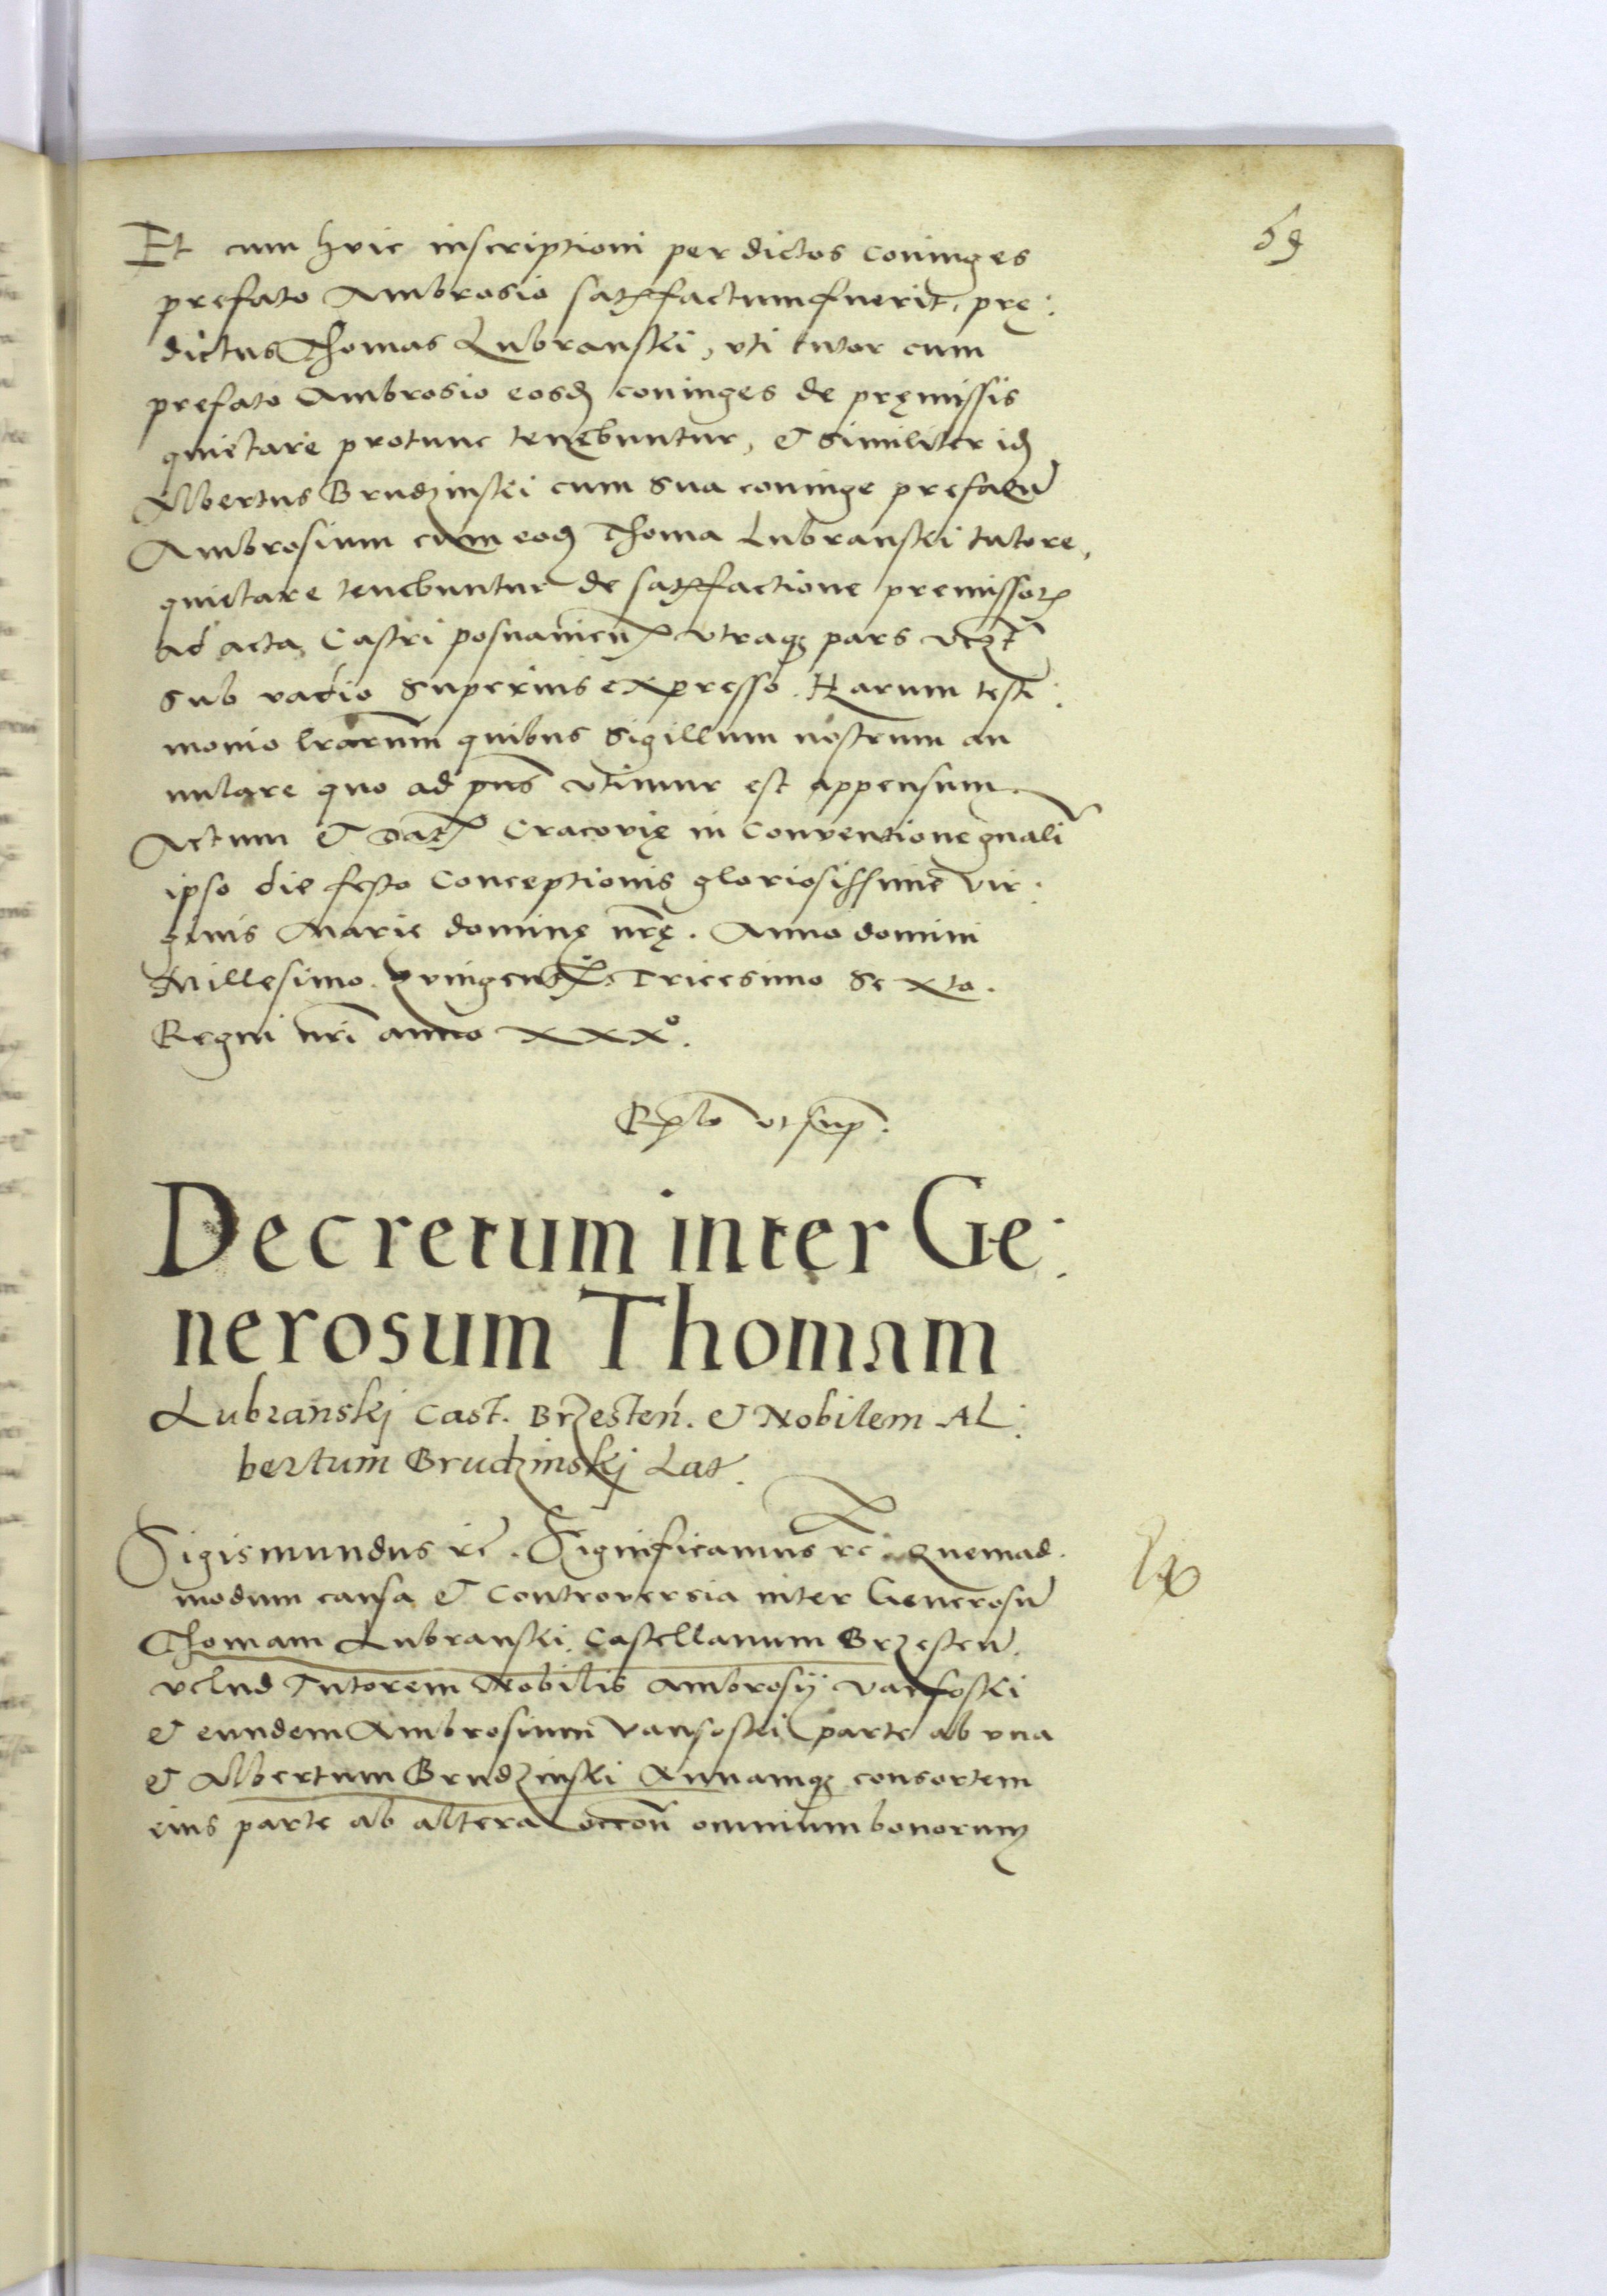 69
Et cum huic inscriptioni per dictos coniuges
prefato Ambrosio satisfactum fuerit, prę:
dictus Thomas Lubranski, vti tutor cum
prefato Ambrosio eosd coniuges de pręmissis
quietare protunc tenebuntur, & similiter id
Albertus Brudzinski cum sua coniuge prefatū
Ambrosium cum eod Thoma Lubranski tutore,
quietare tenebuntur de satisfactione premissor
ad acta Castri posnanien vtraq pars
sub vadio superius expresso. Harum testi:
monio lrarum quibus Sigillum nostrum an
nulare quo ad pns vtimur est appensum.
Actum & Dat Cracovię in Conventione gnali
ipso die festo Conceptionis gloriosissime vir:
ginis Marie dominę nrę. Anno domini
Millesimo Quingentes Tricesimo Sexto.
Regni nri anno xxx°.
vt sup.
Decretum inter Ge:
nerosum Thomam
Lubranskj Cast. Brzesteń. & Nobilem Al:
bertum Brudzinskj Lat.
Sigismundus rc. Significamus rc. Quemad.
modum causa & Controversia inter Generosū
Thomam Lubranski Castellanum Brzesten.
velud Tutorem Nobilis Ambrosij Vansoski
& eundem Ambrosium Vansoski parte ab vna
& Albertum Brudzinski Annamq consortem
eius parte ab altera occoñ omnium bonorum